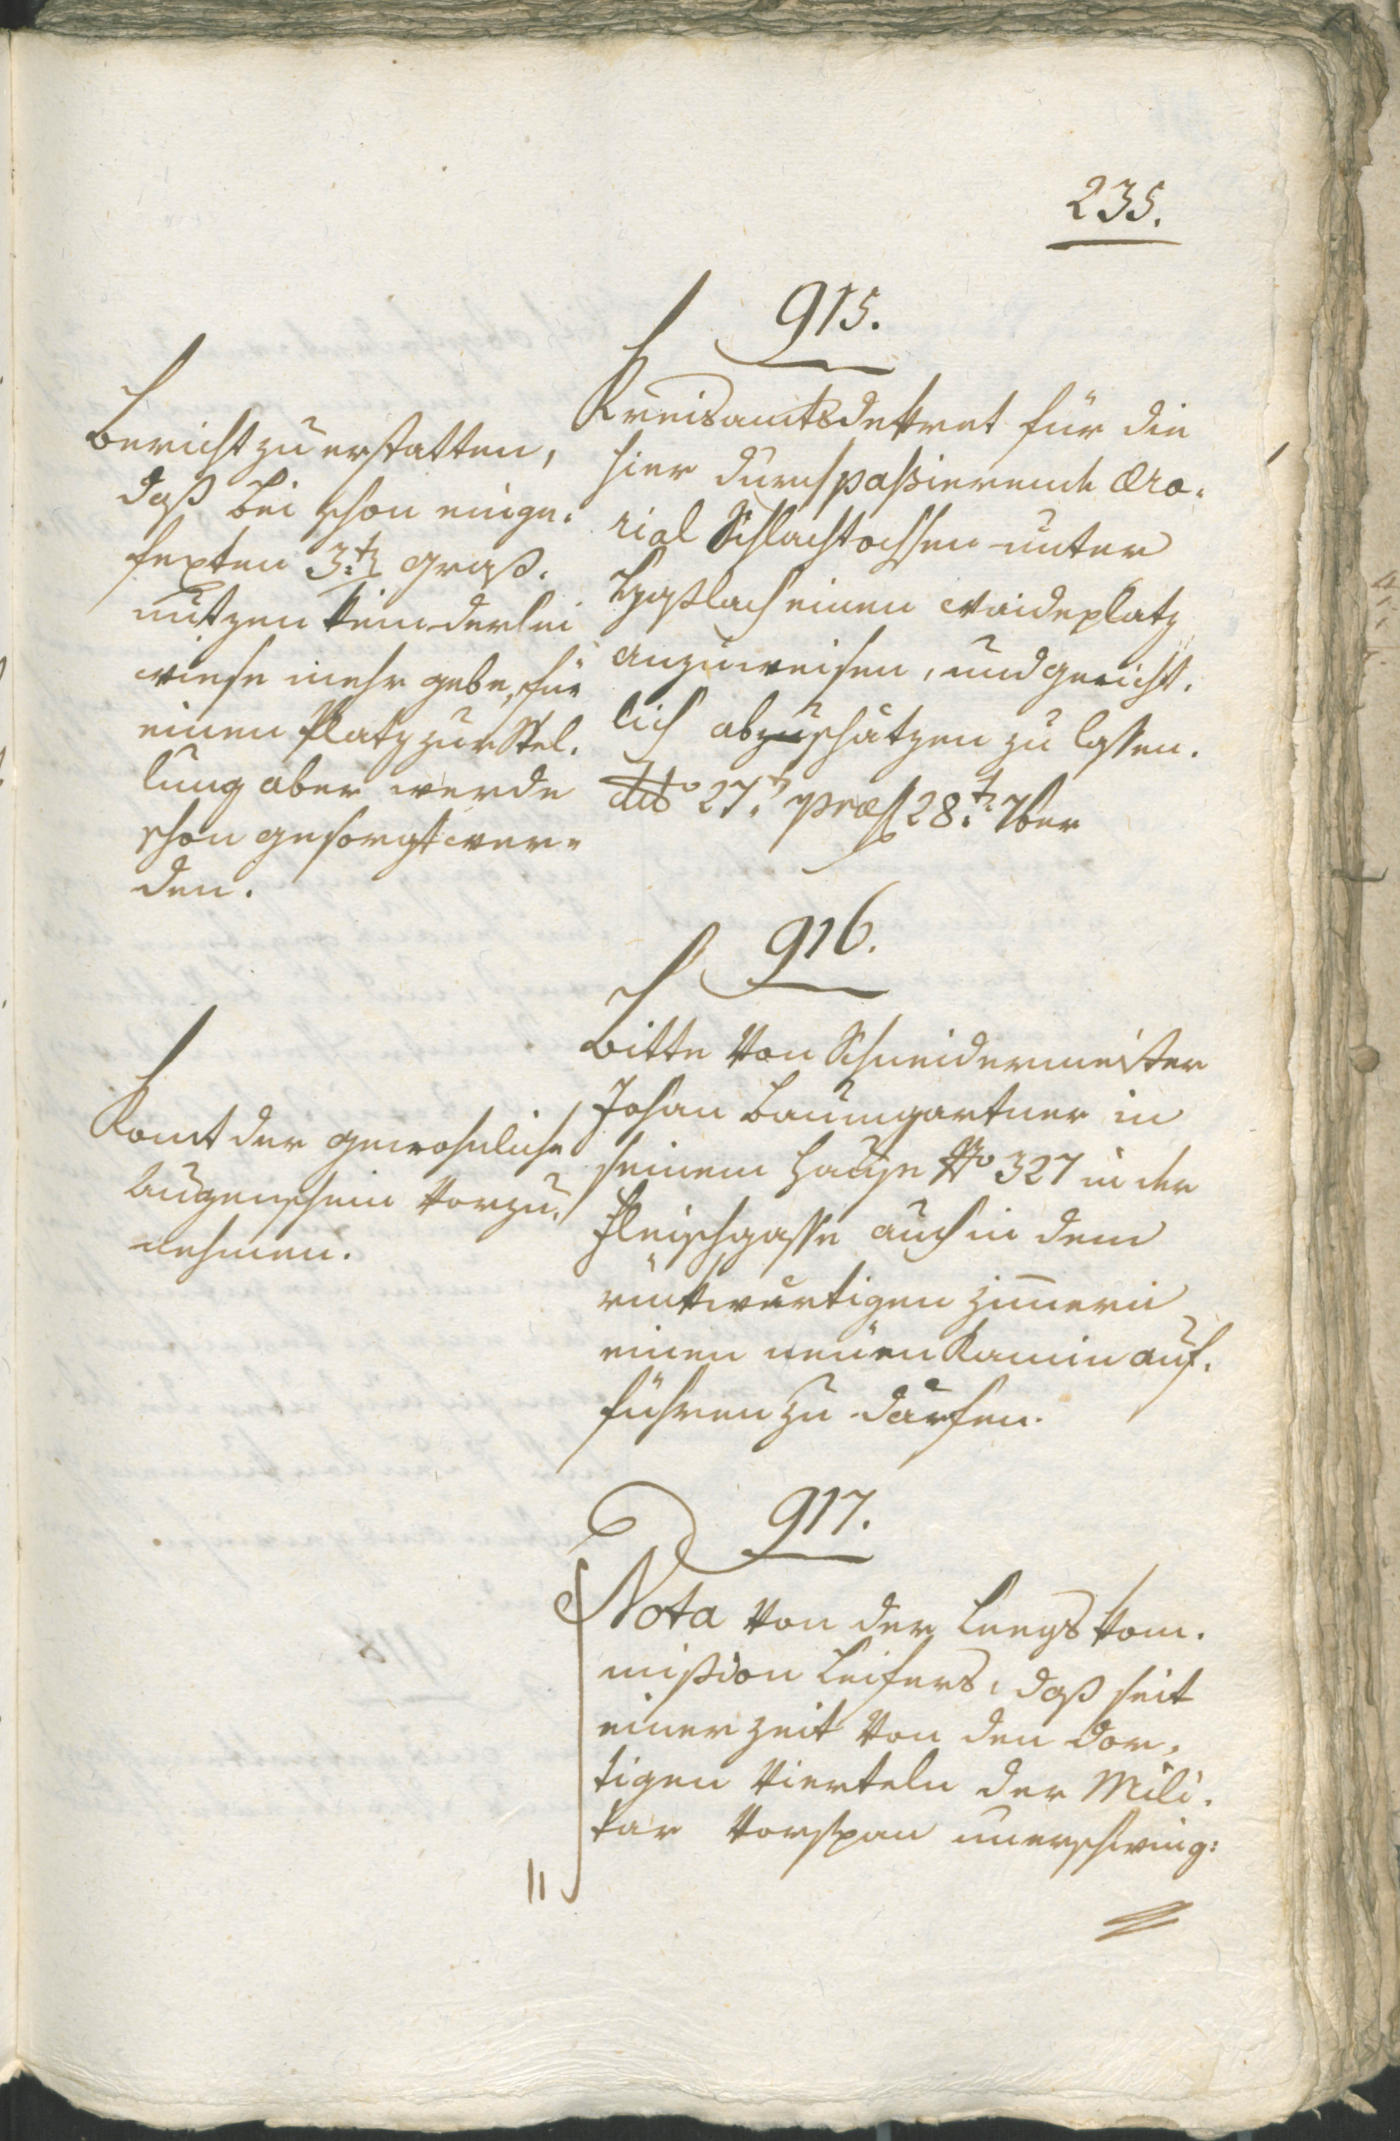 235.
915.
Kreisamtsdektret für die
hier durchpaßierende Æra-
rial Schlachtochsen unter
einen Waideplatz
anzuweisen, und gericht-
lich abzuschätzen zu lassen.
dto 27t praes 28t 7ber
Bericht zu erstatten,
daß bei schon einge-
fexten 3tn Graß-
nutzen kein derlei
Wiese mehr gebe, für
einen Platz zur Stel-
lung aber werde
schon gesorgt wer-
den.
916.
Bitte von Schneidermeister
Johan Baumgartner in
seinem Hause No 327 in der
Fleischgasse auch in dem
rükwärtigen Zimern
einen neuen Kamin auf-
führen zu därfen.
Komt der gewohnliche
Augenschein vorzu-
nehmen.
917.
Nota von der Leegs kom-
mißion Leifers, daß seit
einer Zeit von den dor-
tigen Vierteln der Mili-
tar Vorspan unerschwing-